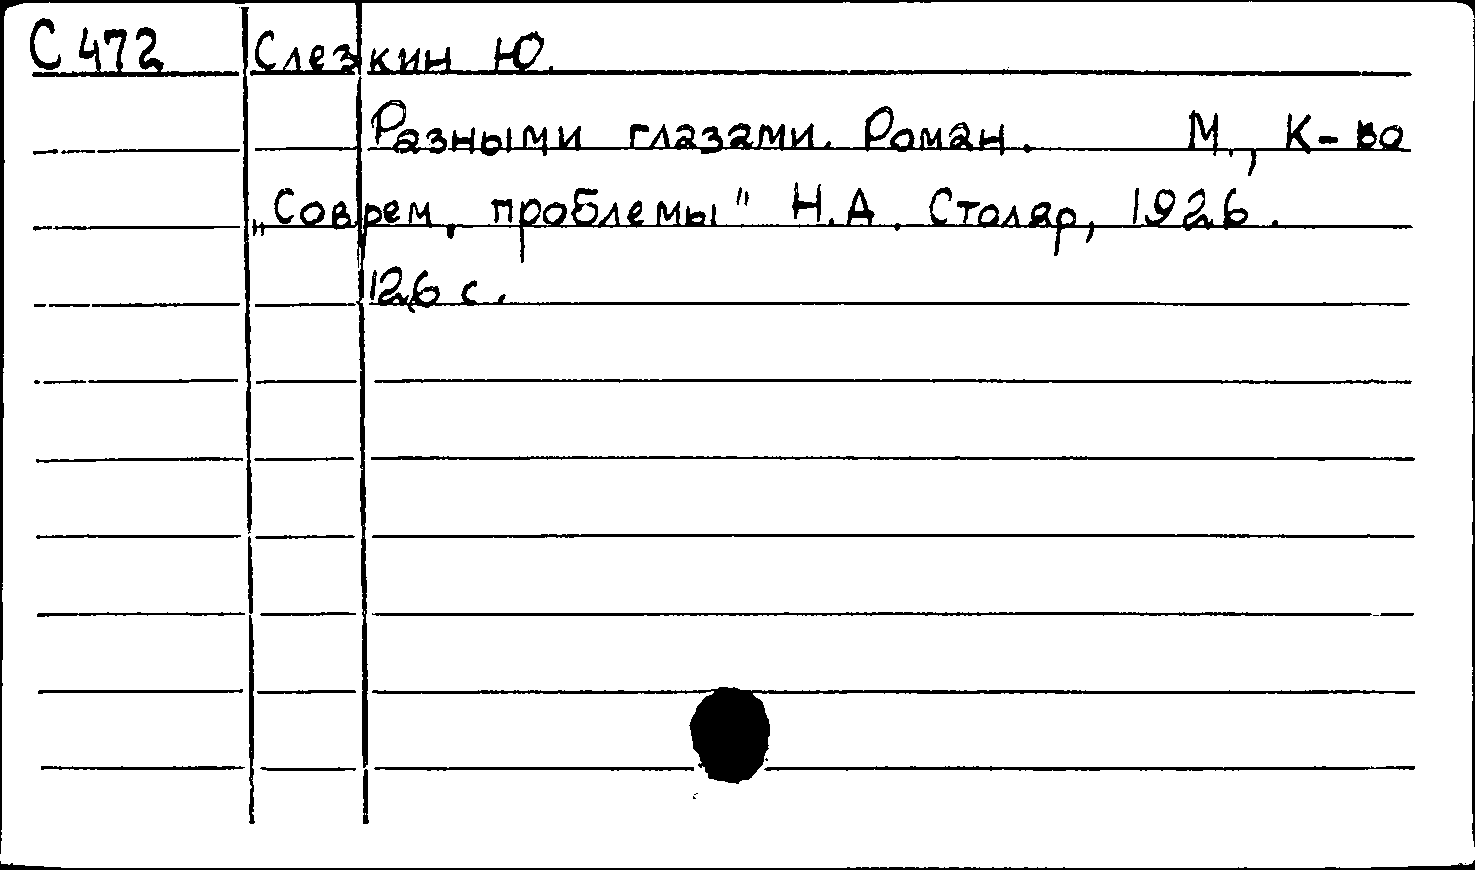 С 472 Слезкин Ю.
Разными глазами. Роман. М., К-во
„Соврем. проблемы" Н.А. Столяр, 1926.
126 с.